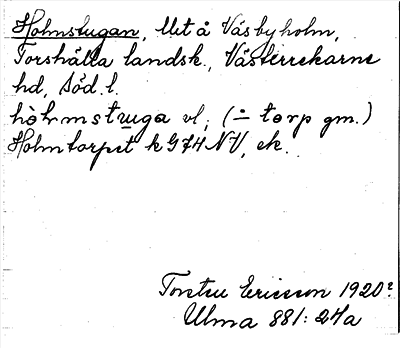 Holmstugan, lht å Väsbyholm,
Torshälla landsk., Västerrekarne
hd, Söd. l.
hòlmstuga vl, (÷ torp gm.)
Holmtorpet k G74 NV, ek.
Torsten Ericsson 1920?
Ulma 881: 24a